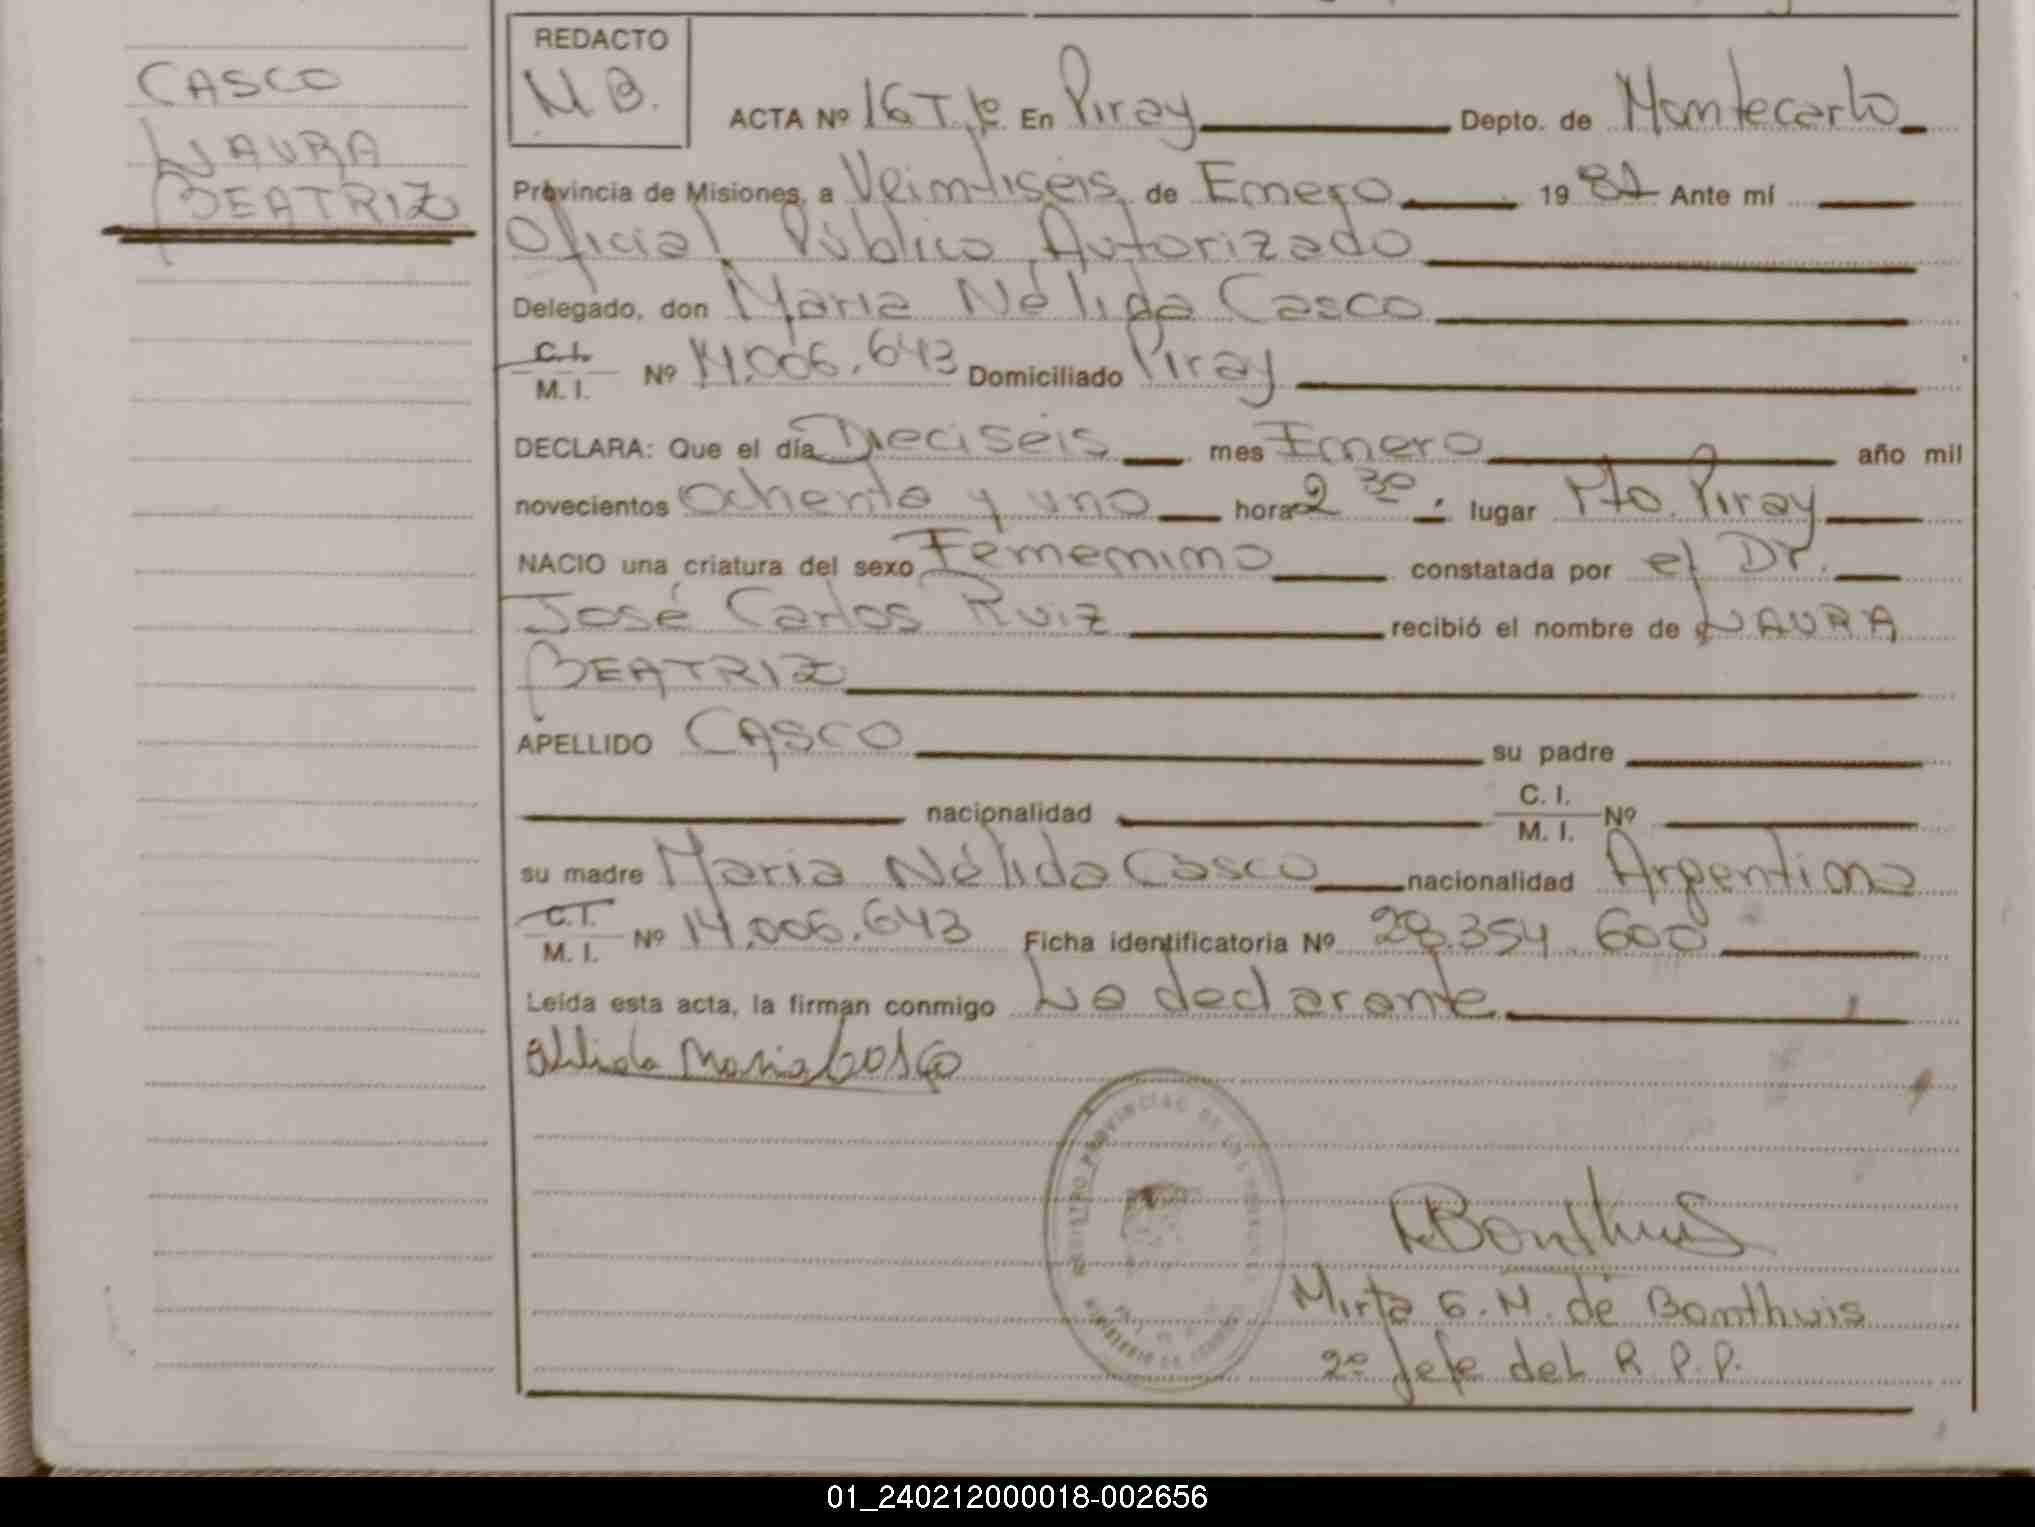 CASCO
LAURA
BEATRIZ
REDACTO
M B.
ACTA Nº 16 T. Iº En Piray Depto. de Montecarlo
Provincia de Misiones, a Veintiseis de Enero 19 81 Ante mí
Oficial Público Autorizado
Delegado, don Maria Nélida Casco
C.I.
M. I. Nº 14.006.643 Domiciliado Piray
DECLARA: Que el día Dieciseis mes Enero año mil
novecientos ochenta y uno hora 2 30 lugar Pto. Piray
NACIO una criatura del sexo Femenino constatada por el Dr.
José Carlos Ruiz recibió el nombre de LAURA
BEATRIZ
APELLIDO CASCO su padre
nacionalidad C. I.
M. I. Nº
su madre Maria Nélida Casco nacionalidad Argentina
C.I.
M. I. Nº 14.006.643 Ficha identificatoria Nº 28.354.600
Leída esta acta, la firman conmigo La declarante
Nelida Maria Casco
REGISTRO PROVINCIAL DE LAS PERSONAS
MINISTERIO DE GOBIERNO
Bonthuis
Mirta G. M. de Bonthuis
2º Jefe del R. P. P.
01_240212000018-002656